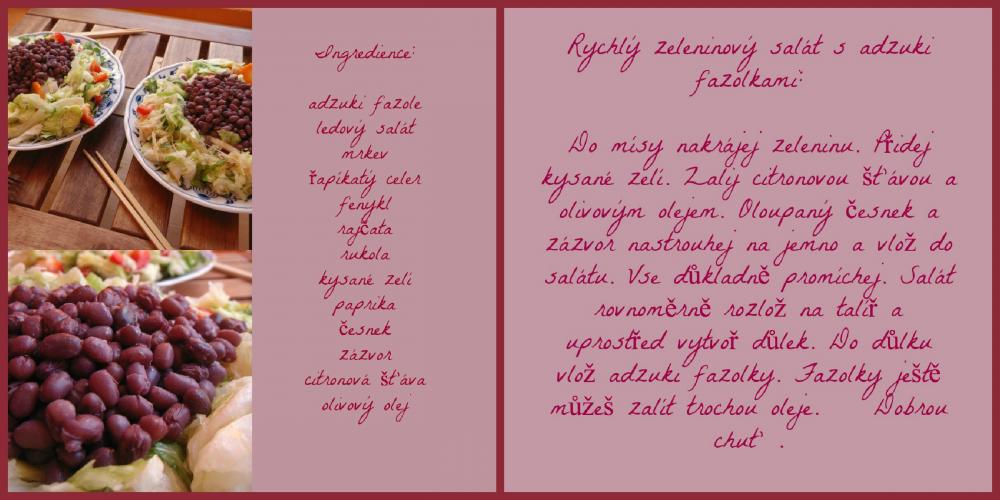 Ingredience:
adzuki fazole
ledový salát
mrkev
řapíkatý celer
fenykl
rajčata
rukola
kysané zelí
paprika
česnek
zázvor
citronová šťáva
olivový olej
Rychlý zeleninový salát s adzuki
fazolkami:
Do mísy nakrájej zeleninu. Přidej
kysané zelí. Zalij citronovou šťávou a
olivovým olejem. Oloupaný česnek a
zázvor nastrouhej na jemno a vlož do
salátu. Vše důkladně promíchej. Salát
rovnoměrně rozlož na talíř a
uprostřed vytvoř důlek. Do důlku
vlož adzuki fazolky. Fazolky ještě
můžeš zalít trochou oleje. Dobrou
chuť .